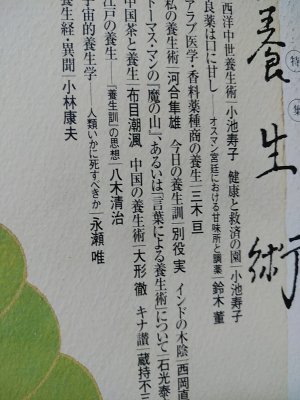 特集
養生術
西洋中世養生術│小池寿子 健康と救済の園│小池寿子
良薬は口に甘し──オスマン宮廷における甘味所と調薬│鈴木董
アラブ医学・香料薬種商の養生│三木亘
私の養生術│河合隼雄 今日の養生訓│別役実 インドの木陰│西岡直
トーマス・マンの『魔の山』、あるいは「言葉による養生術」について│石光泰
中国茶と養生│布目潮渢 中国の養生術│大形徹 キナ讃│蔵持不三
江戸の養生──『養生訓』の思想│八木清治
宇宙的養生学──人類いかに死すべきか│永瀬唯
養生経・異聞│小林康夫